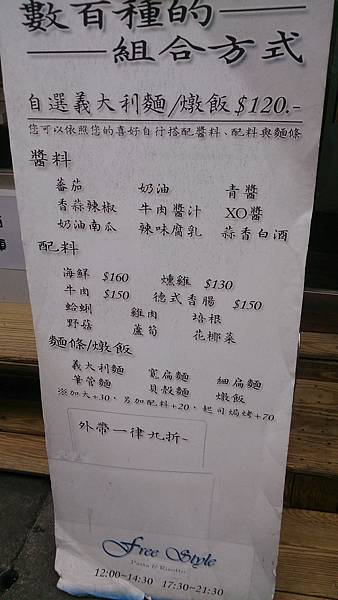 數百種的——
——組合方式
自選義大利麵/燉飯$120.-
您可以依照您的喜好自行搭配醬料、配料與麵條
醬料
蕃茄 奶油 青醬
香蒜辣椒 牛肉醬汁 XO醬
奶油南瓜 辣味腐乳 蒜香白酒
配料
海鮮 $160 燻雞 $130
牛肉 $150 德式香腸 $150
蛤蜊 雞肉 培根
野菇 蘆筍 花椰菜
麵條/燉飯
義大利麵 寬扁麵 細扁麵
筆管麵 貝殼麵 燉飯
※加大+30, 另加配料+20, 起司焗烤+70
外帶一律九折~
Free Style
Pasta & Risotto
12:00~14:30 17:30~21:30